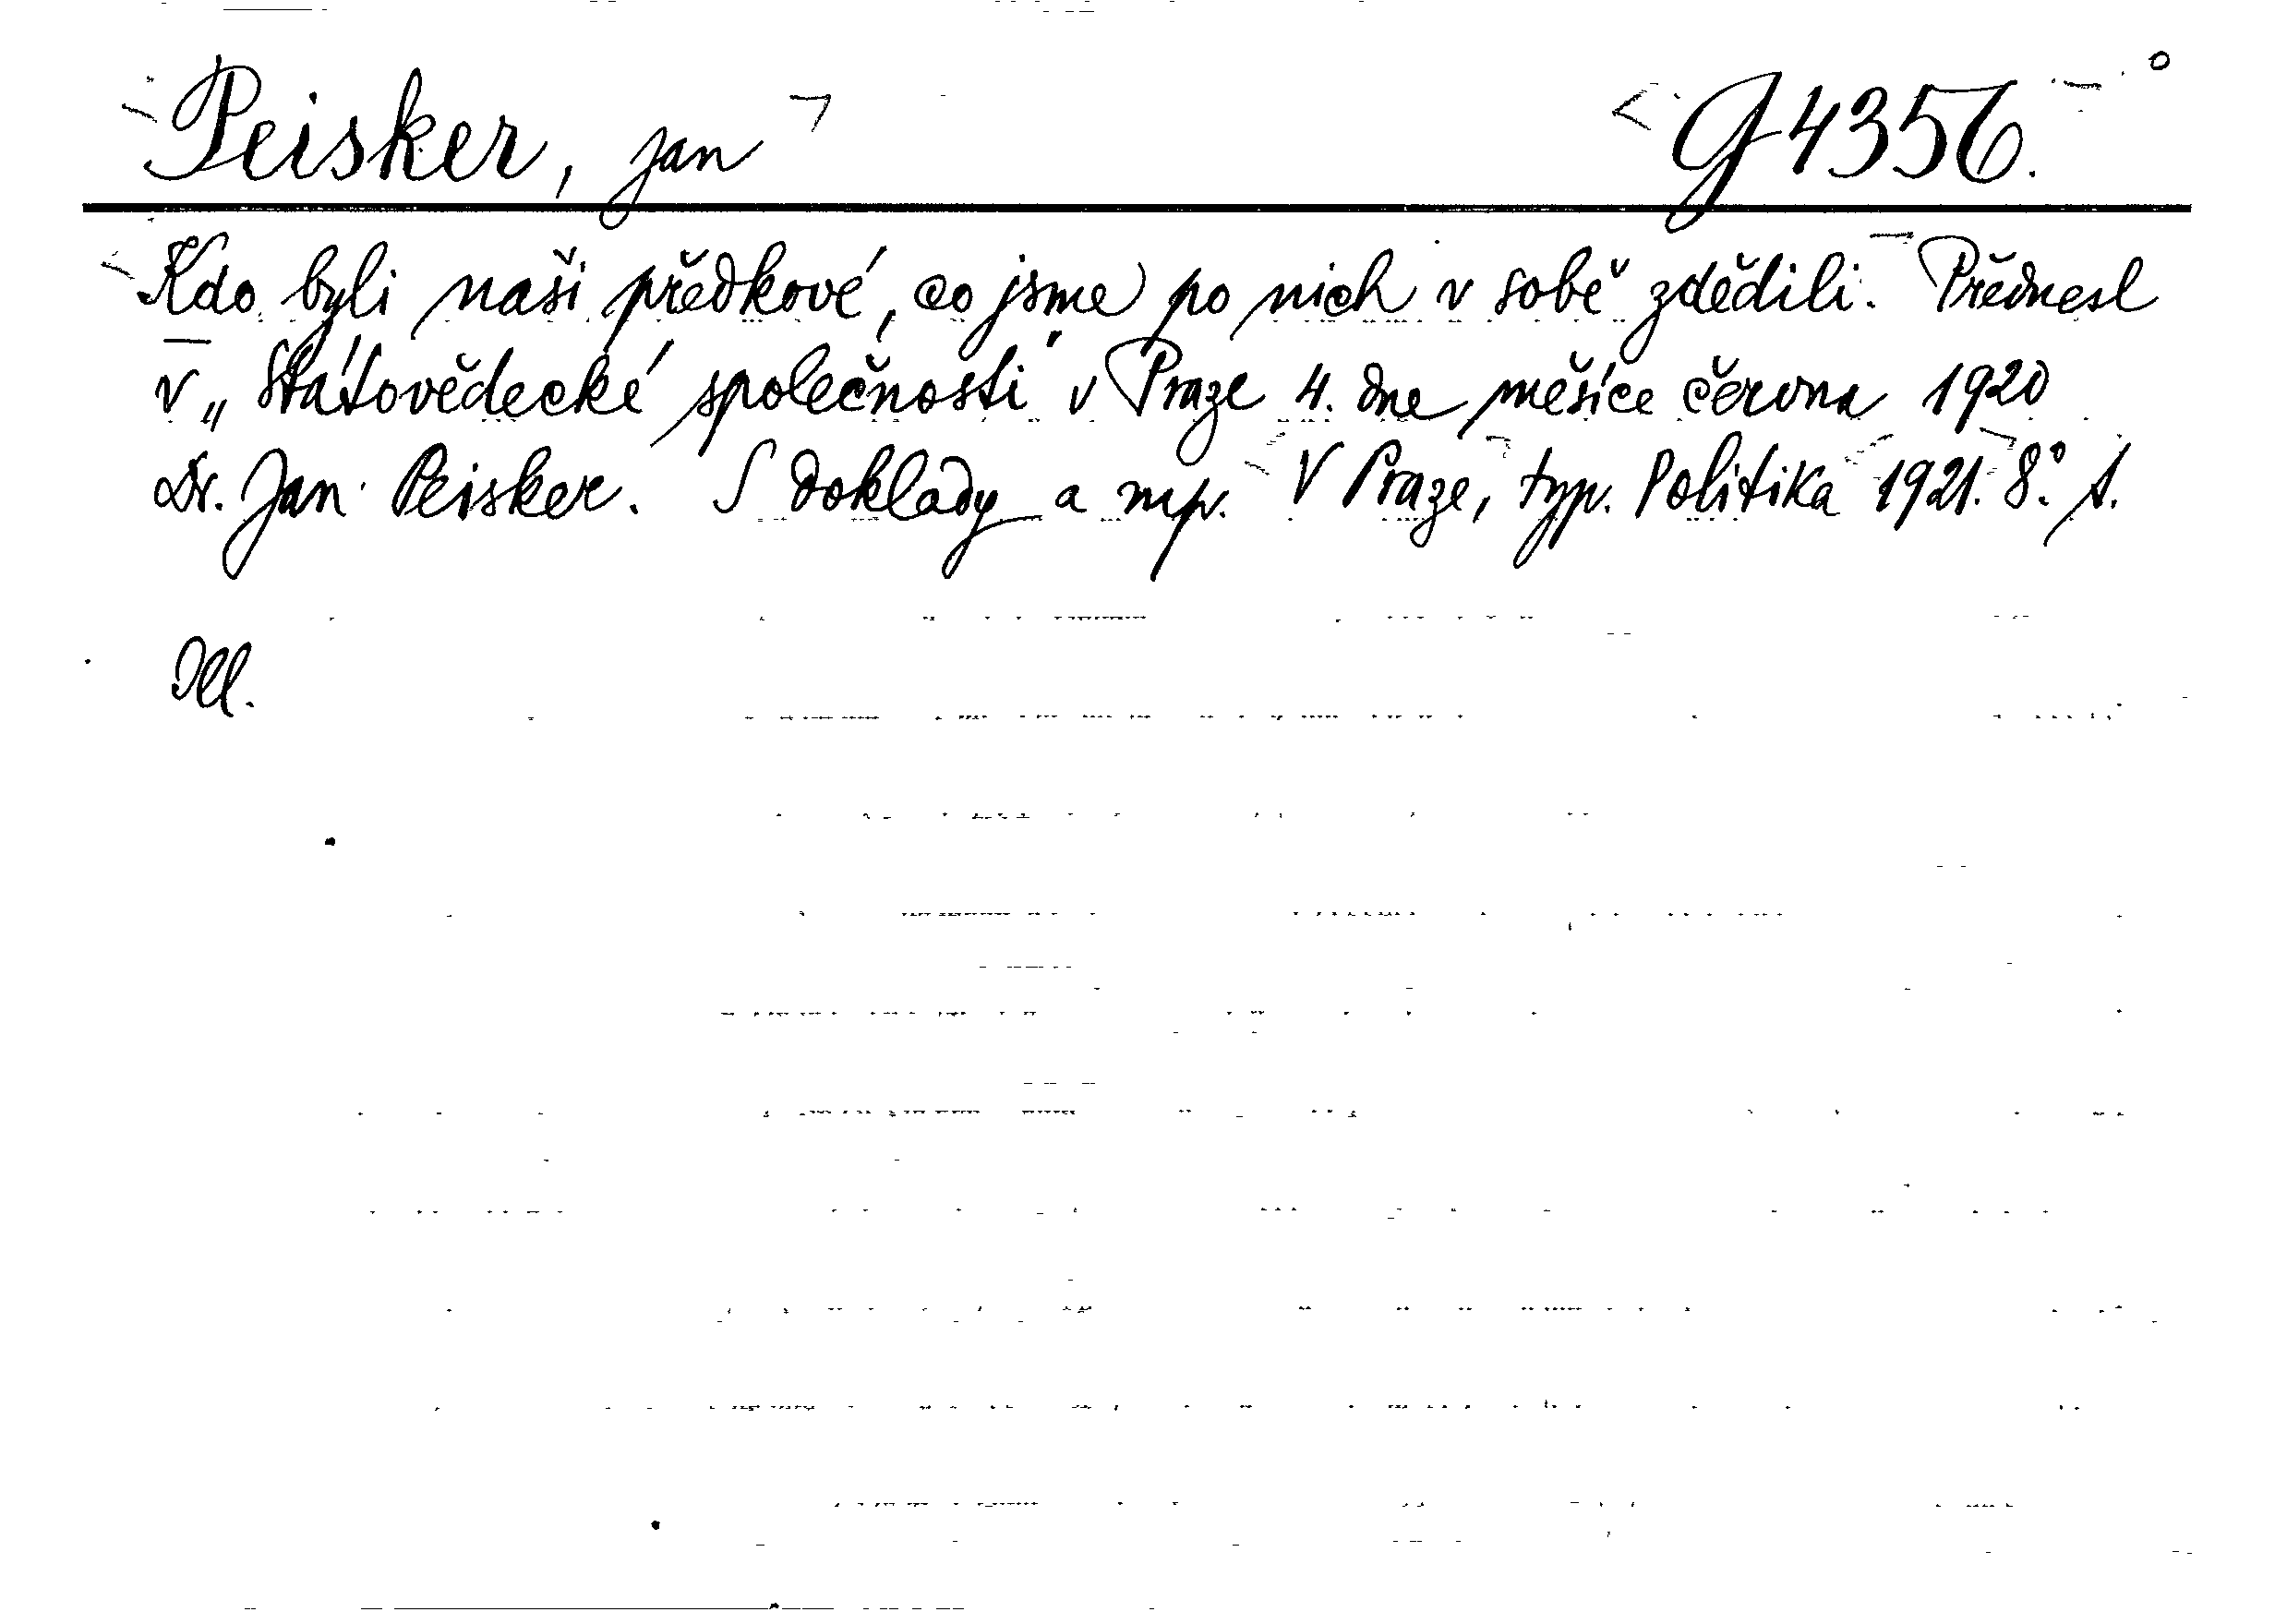 Peisker, Jan G 4356.
Kdo byli naši předkové, co jsme po nich v sobě zdědili. Přednesl
v „Státovědecké společnosti" v Praze 4. dne měsíce června 1920
Dr. Jan Peisker. S doklady a mp. V Praze, typ. Politika 1921. 8°. 1.
Ill.